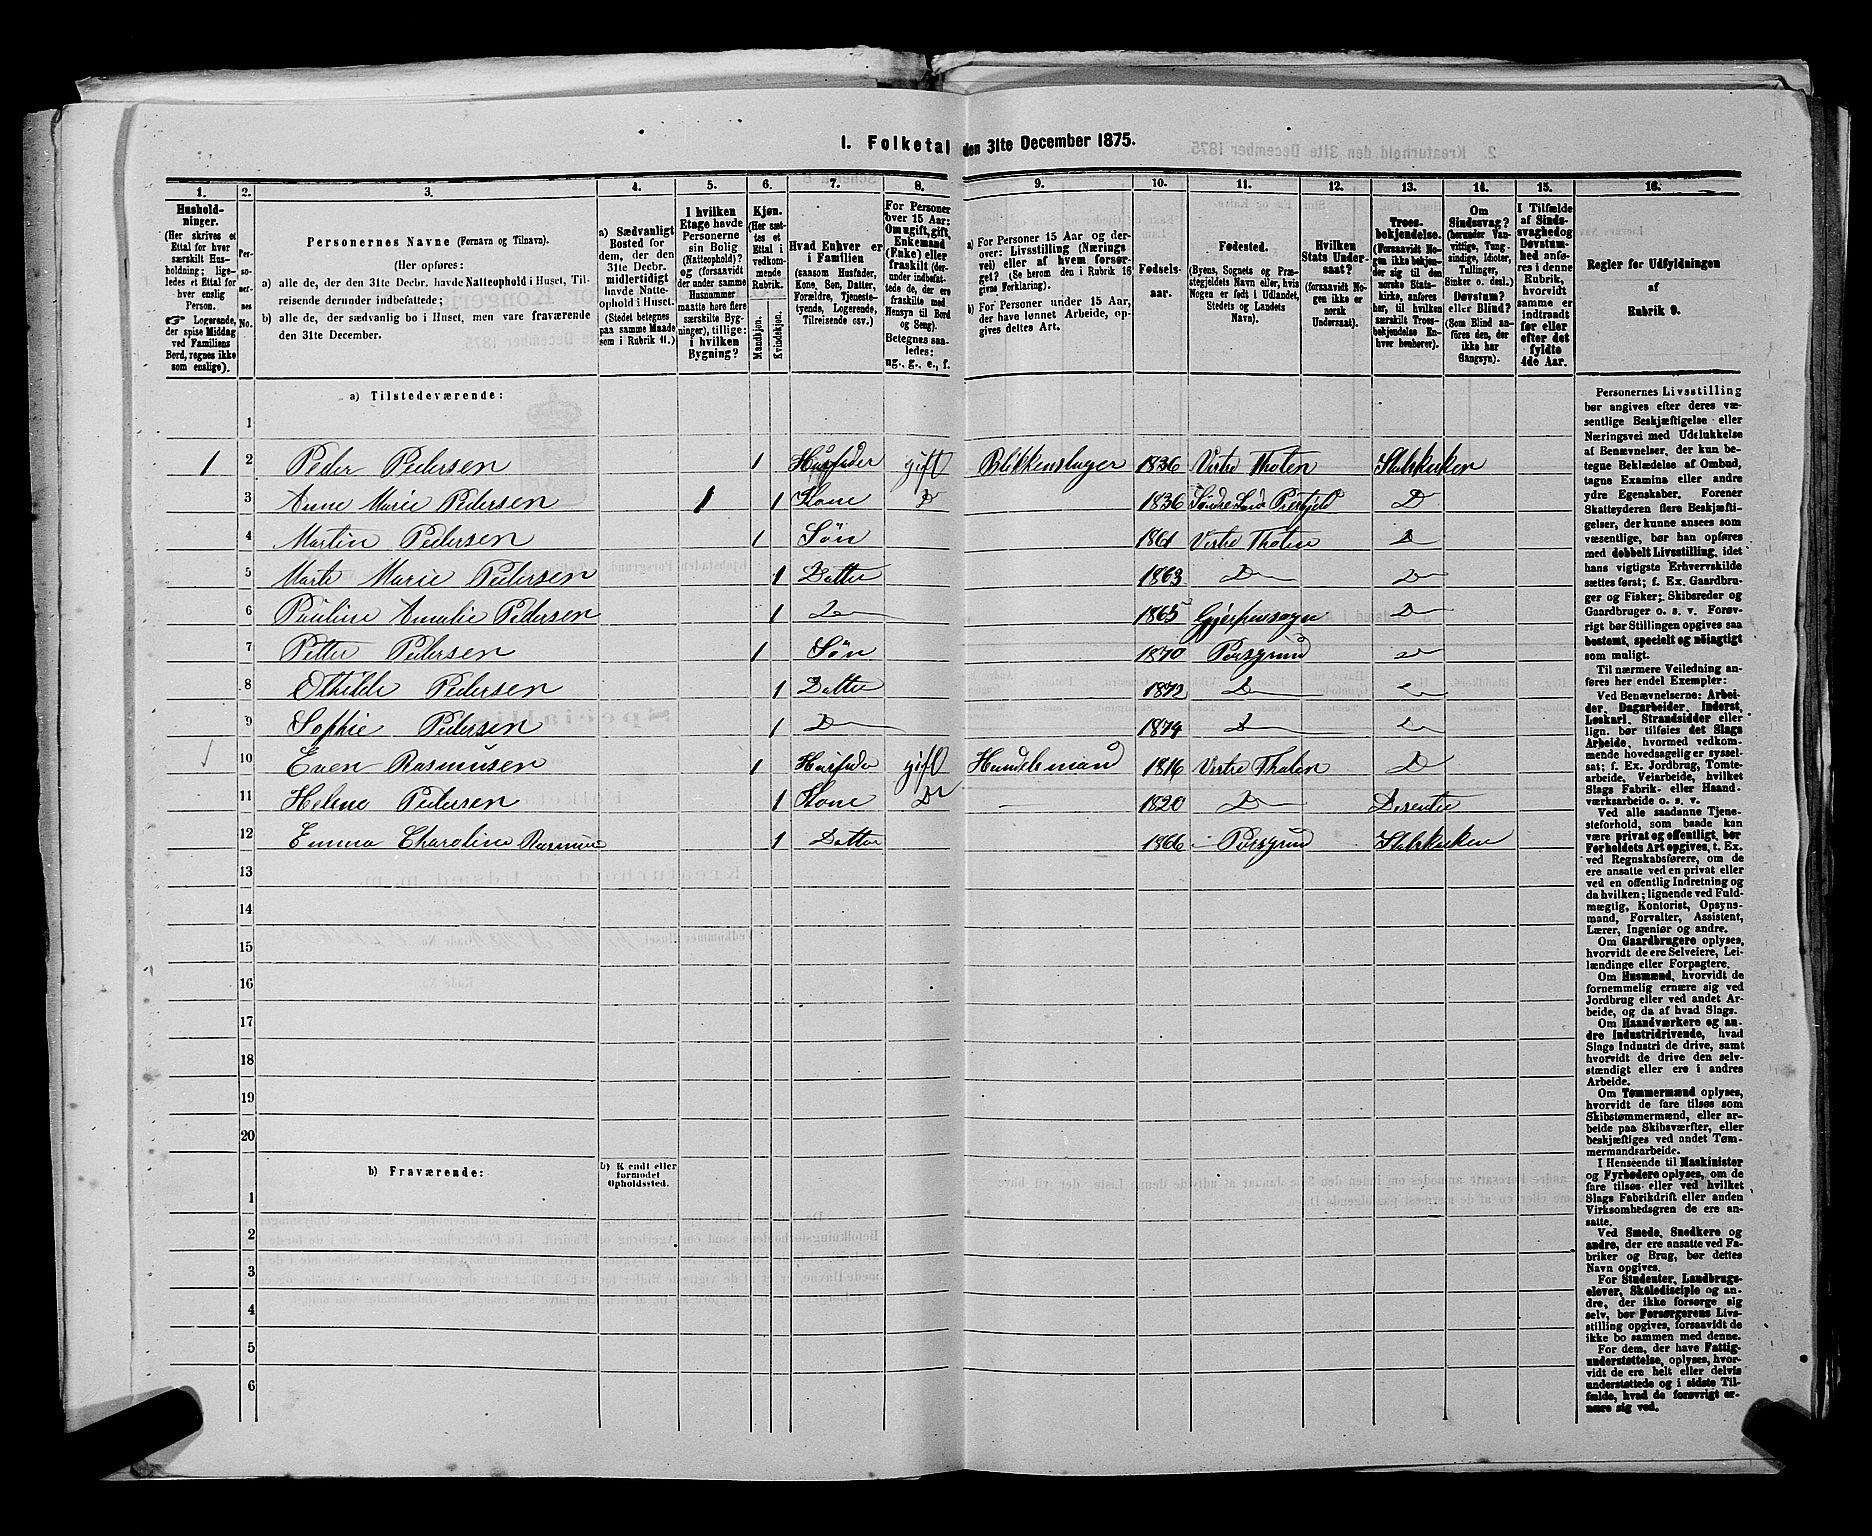 1. Folketal den 31te December 1875.
1. 2. 3. 4. 5. 6. 7. 8. 9. 10. 11. 12. 13. 14. 15. 16.
Hushold-
ninger.
(Her skrives et
Ettal for hver
særskilt Hus-
holdning; lige-
ledes et Ettal for
hver enslig
Person.
☞ Logerende,
der spise Middag
ved Familiens
Bord, regnes ikke
som enslige).
Per-
so-
ner-
nes
No.
Personernes Navne (Fornavn og Tilnavn).
(Her opføres:
a) alle de, der den 31te Decbr. havde Natteophold i Huset, Til-
reisende derunder indbefattede;
b) alle de, der sædvanlig bo i Huset, men vare fraværende
den 31te December.
a) Sædvanligt
Bosted for
dem, der den
31te Decbr.
midlertidigt
havde Natte-
ophold i Huset.
(Stedet betegnes
paa samme Maade
som i Rubrik 11.)
I hvilken
Etage havde
Personerne
sin Bolig
(Natteophold)?
og (forsaavidt
der under samme
Husnummer
maatte høre flere
særskilte Byg-
ninger), tillige:
i hvilken
Bygning?
Kjøn.
(Her sæt-
tes et
Ettal i
vedkom-
mende
Rubrik.
Mandkjøn.
Kvindekjøn.
Hvad Enhver er
i Familien
(saasom Husfader,
Kone, Søn, Datter,
Forældre, Tjeneste-
tyende, Logerende,
Tilreisende osv.)
For Personer
over 15 Aar:
Om ugift, gift,
Enkemand
(Enke) eller
fraskilt (der-
under indbefat-
tede de, der ere
fraskilte med
Hensyn til Bord
og Seng).
Betegnes saa-
ledes:
ug., g., e., f.
a) For Personer 15 Aar og der-
over: Livsstilling (Nærings
vei) eller af hvem forsør-
get? (Se herom den i Rubrik 16
givne Forklaring).
b) For Personer under 15 Aar,
der have lønnet Arbeide, op-
gives dettes Art.
Fødsels-
aar.
Fødested.
(Byens, Sognets og Præ-
stegjeldets Navn eller, hvis
Nogen er født i Udlandet,
Stedets og Landets
Navn).
Hvilken
Stats Under-
saat?
(forsaavidt No-
gen ikke er
norsk
Undersaat).
Troes-
bekjendelse.
(Forsaavidt No-
gen ikke bekjen-
der sig til den
norske Stats-
kirke, anføres
her, til hvilken
særskilt Troes-
bekjendelse En-
hver henhører).
Om
Sindssvag?
(herunder Van-
vittige, Tung-
sindige, Idioter,
Tullinger,
Sinker o. desl.)
Døvstum?
eller Blind?
(Som Blind an-
føres den, der
ikke har
Gangsyn).
I Tilfælde
af Sinds-
svaghed og
Døvstum-
hed anfø-
res i denne
Rubrik,
hvorvidt
samme er
indtraadt
før eller
efter det
fyldte
4de Aar.
Regler for Udfyldningen
af
Rubrik 9.
a) Tilstedeværende:
1
1 2 Peder Pedersen 1 Husfader gift Blikkenslager 1836 Vestre Thoten Statskirken
3 Anne Marie Pedersen 1 1 Kone D 1836 Søndre Land Prestgjeld D
4 Martin Pedersen 1 Søn 1861 Vestre Thoten D
5 Marte Marie Pedersen 1 Datter 1863 D D
6 Pauline Amalie Pedersen 1 D 1865 Gjerpensogn D
7 Petter Pedersen 1 Søn 1870 Porsgrund D
8 Othilde Pedersen 1 Datter 1872 D D
9 Sophie Pedersen 1 D 1874 D D
10 Even Rasmusen 1 Husfader gift Handelsmand 1816 Vestre Thoten D
11 Helene Pedersen 1 Kone D 1820 D Desenter
12 Emma Charoline Rasmusen 1 Datter 1866 Porsgrund Statskirken
13
14
15
16
17
18
19
20
b) Fraværende:
b) Kendt eller
formodet
Opholdssted.
1
2
3
4
5
6
Personernes Livsstilling
bør angives efter deres væ-
sentlige Beskjæftigelse eller
Næringsvei med Udelukkelse
af Benævnelser, der kun be-
tegne Beklædelse af Ombud,
tagne Examina eller andre
ydre Egenskaber. Forener
Skatteyderen flere Beskjæfti-
gelser, der kunne ansees som
væsentlige, bør han opføres
med dobbelt Livsstilling, idet
hans vigtigste Erhvervskilde
sættes først; f. Ex. Gaardbru-
ger og Fisker; Skibsreder og
Gaardbruger o. s. v. Forøv-
rigt bør Stillingen opgives saa
bestemt, specielt og nøiagtigt
som muligt.
Til nærmere Veiledning an-
føres her endel Exempler:
Ved Benævnelserne: Arbei-
der, Dagarbeider, Inderst,
Løskarl, Strandsidder eller
lign. bør tilføies det Slags
Arbeide, hvormed vedkom-
mende hovedsagelig er syssel-
sat; f. Ex. Jordbrug, Tomte-
arbeide, Veiarbeide, hvilket
Slags Fabrik- eller Haand-
værksarbeide o. s. v.
Ved alle saadanne Tjene-
steforhold, som baade kan
være privat og offentligt, bør
Forholdets Art opgives, t. Ex.
ved Regnskabsførere, om de
ere ansatte ved en privat eller
ved en offentlig Indretning og
da hvilken; lignende ved Fuld-
mægtig, Kontorist, Opsyns-
mand, Forvalter, Assistent,
Lærer, Ingeniør og andre.
Om Gaardbrugere oplyses,
hvorvidt de ere Selveiere, Lei-
lændinge eller Forpagtere.
Om Husmænd, hvorvidt de
fornemmelig ernære sig ved
Jordbrug eller ved andet Ar-
beide, og da af hvad Slags.
Om Haandværkere og an-
dre Industridrivende, hvad
Slags Industri de drive, samt
hvorvidt de drive den selv-
stændigt eller ere i andres
Arbeide.
Om Tømmermænd oplyses,
hvorvidt de fare tilsøs som
Skibstømmermænd, eller ar-
beide paa Skibsværfter, eller
beskjæftiges ved andet Tøm-
mermandsarbeide.
I Henseende til Maskinister
og Fyrbødere oplyses, om de
fare tilsøs eller ved hvilket
Slags Fabrikdrift eller anden
Virksomhedsgren de ere an-
satte.
Ved Smede, Snedkere og
andre, der ere ansatte ved Fa-
briker og Brug, bør dettes
Navn opgives.
For Studenter, Landbrugs-
elever, Skoledisciple og an-
dre, der ikke forsørge sig
selv, bør Forsørgerens Livs-
stilling opgives, forsaavidt de
ikke bo sammen med denne.
For dem, der have Fattig-
understøttelse, oplyses, hvor-
vidt de ere helt eller delvis
understøttede og i sidste Til-
fælde, hvad de forøvrigt er-
nære sig ved.